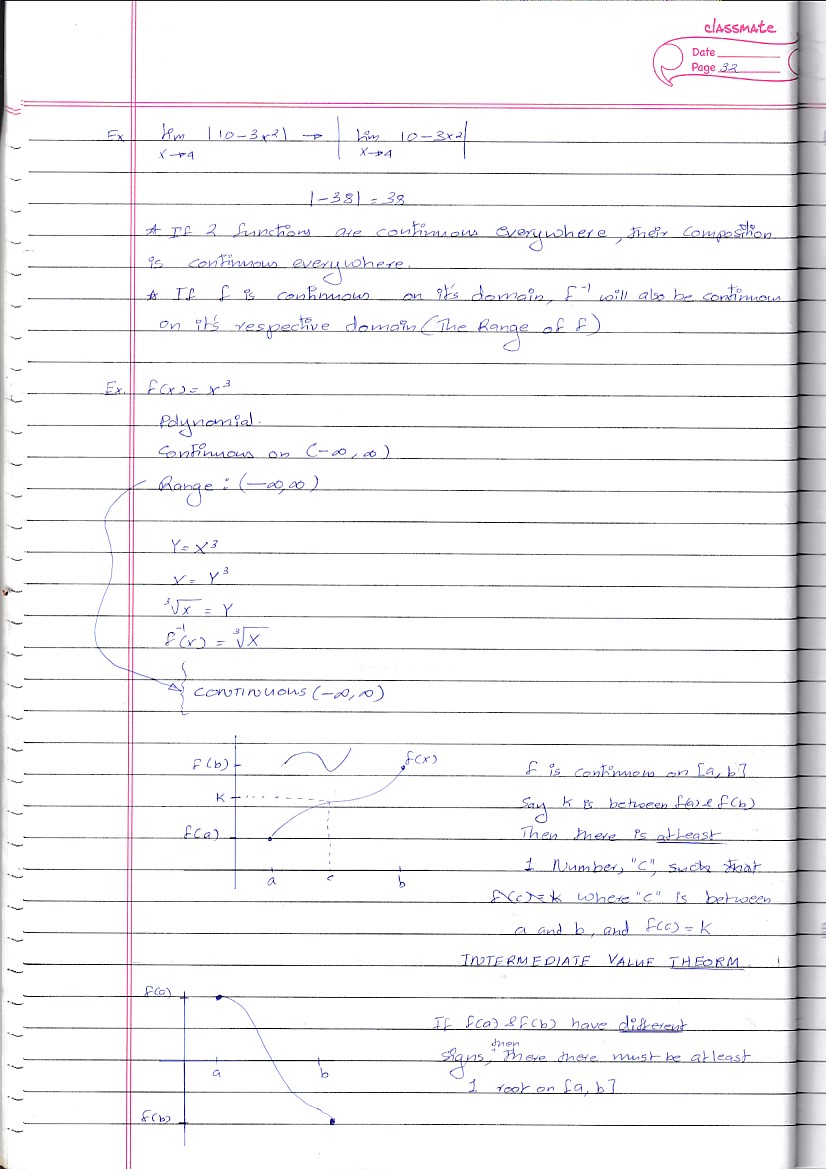 classmate
Date
Page 32
Ex lim |10-3x²| → | lim 10-3x² |
x→4 x→4
|-38| = 38
* If 2 functions are continuous everywhere, their composition
is continuous everywhere.
* If f is continuous on it's domain, f⁻¹ will also be continuous
on it's respective domain (The Range of f)
Ex. f(x) = x³
Polynomial.
Continuous on (-∞, ∞)
Range : (-∞, ∞)
Y = X³
X = Y³
³√x = Y
f⁻¹(x) = ³√X
CONTINUOUS (-∞, ∞)
f(b)
f(x)
K
f(a)
a c b
f is continuous on [a, b]
Say K is between f(a) & f(b)
Then there is atleast
1 Number, "C", such that
where "C" is between
a and b, and f(c) = K
INTERMEDIATE VALUE THEORM
f(a)
a b
f(b)
If f(a) & f(b) have different
signs, then there there must be atleast
1 root on [a, b]